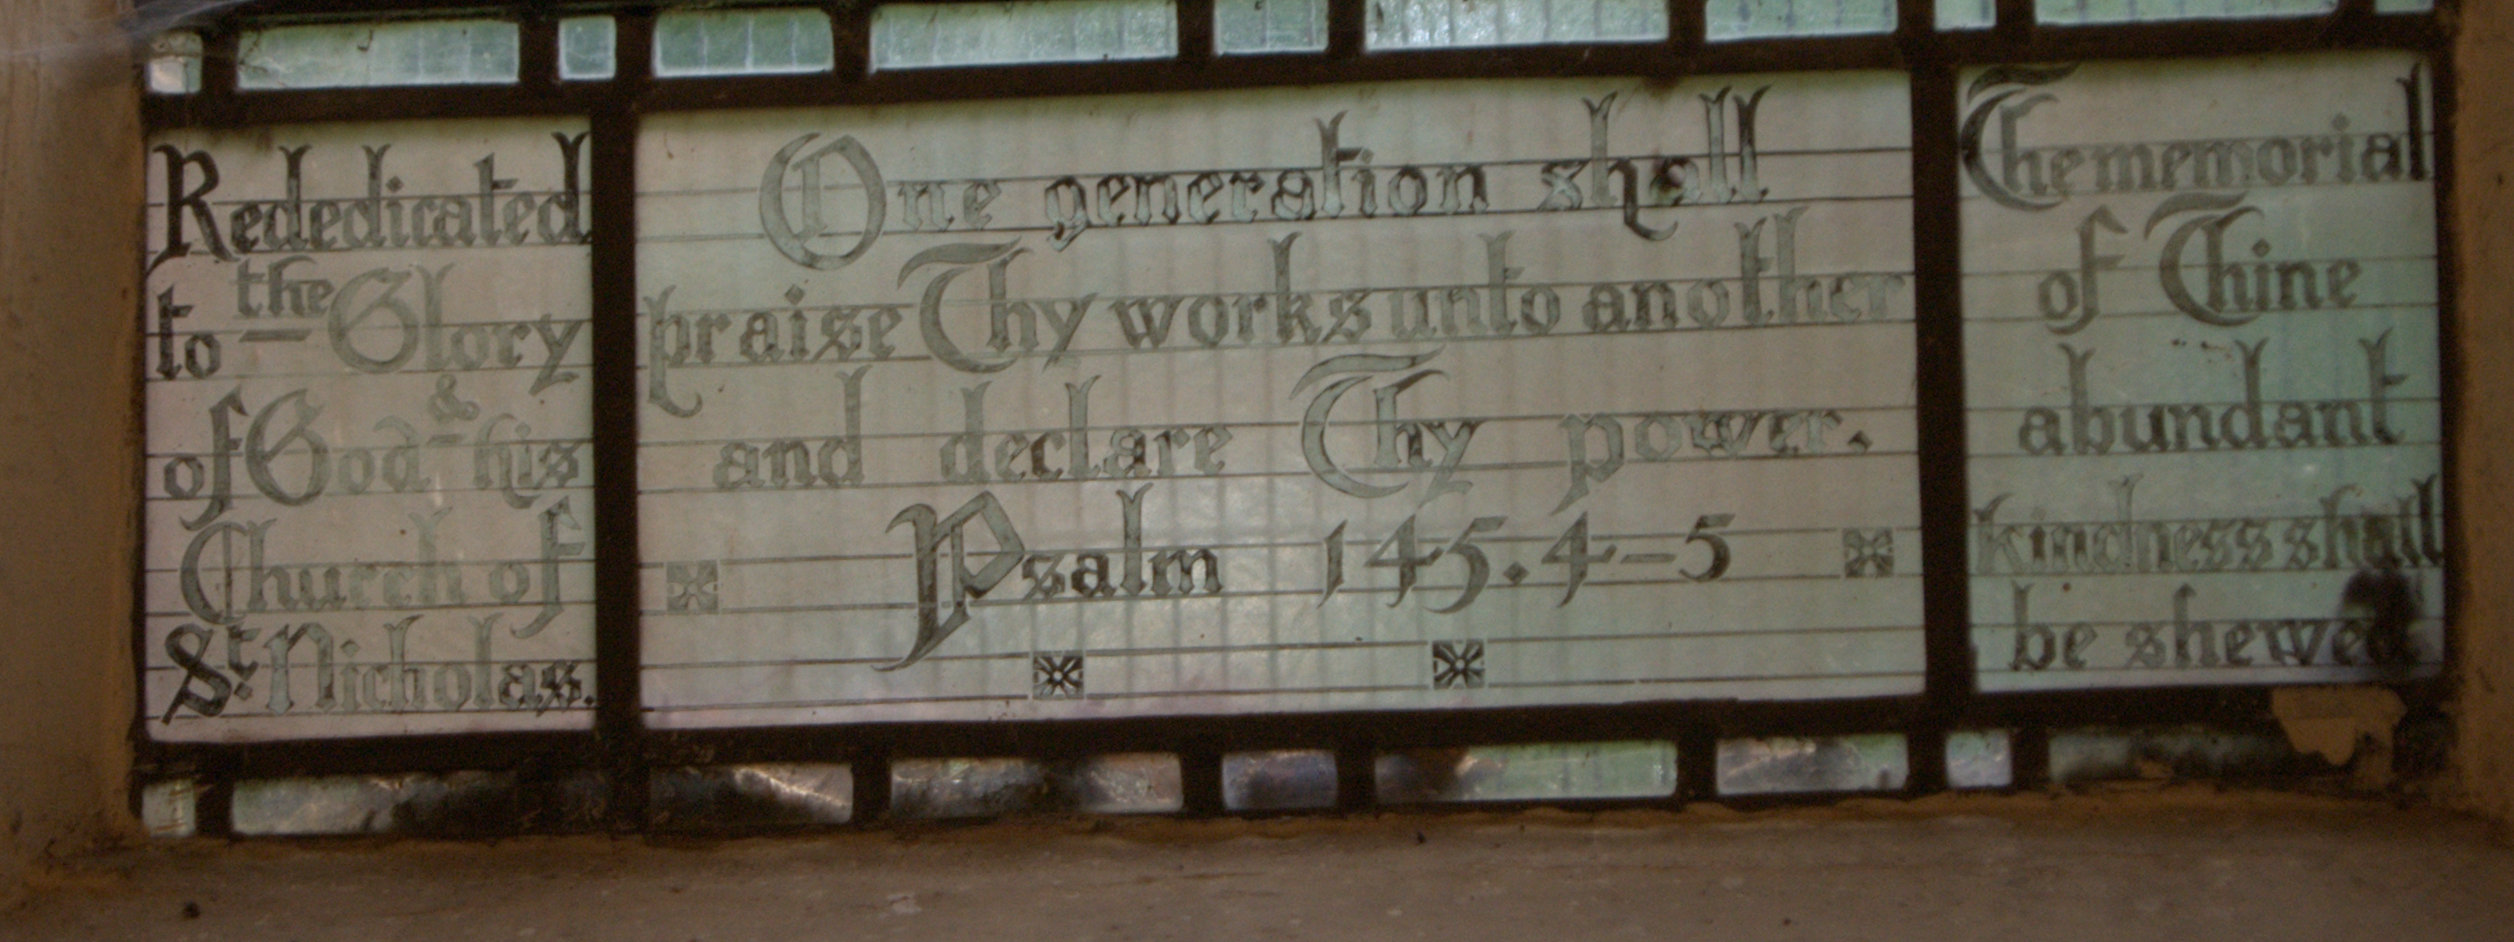 Rededicated
to the Glory
of God & his
Church of
St Nicholas.
One generation shall
praise Thy works unto another
and declare Thy power.
Psalm 145.4-5
The memorial
of Thine
abundant
kindness shall
be shewed